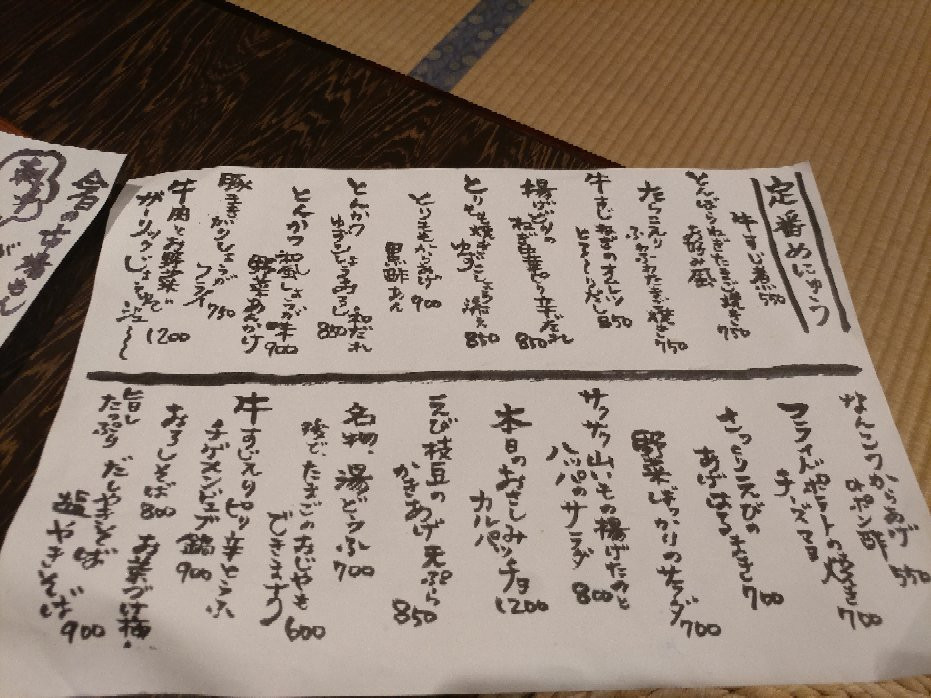 定番めにゅう
牛すじ煮 550
とんばらねぎたまご焼き
お好み風 750
たらこ入り
ふわふわたまご焼き 750
牛すじねぎのオムレツ
とろ〜りだし 850
揚げどりの
ねぎ中華ピリ辛だれ 850
とりもも焼き
ゆずこしょう添え 850
とりももからあげ 900
黒酢あん
とんかつ 和だれ
ゆずこしょうおろし 850
とんかつ 和風しょうが味
野菜あんかけ 900
豚まきがりしょうが
フライ 750
牛肉とお野菜の
ガーリックじょうゆで
ジュ〜 1200
なんこつからあげ
ポン酢 550
フライドポテトの焼き
チーズマヨ 700
さっくりえびの
あげはるまき 700
野菜ばっかりのサラダ 700
サクサク山いもの揚げたのと
ハッパのサラダ 800
本日のおさしみ
カルパッチョ 1200
えび枝豆の天ぷら
かきあげ 850
名物、湯どうふ 700
後で、たまごのおじやも
できますう 600
牛すじ入りピリ辛とうふ
チゲメンビュブ鍋 900
おろしそば 800 お茶づけ 梅・
旨し
たっぷり だしやきそば
塩やきそば 900
今日の
が